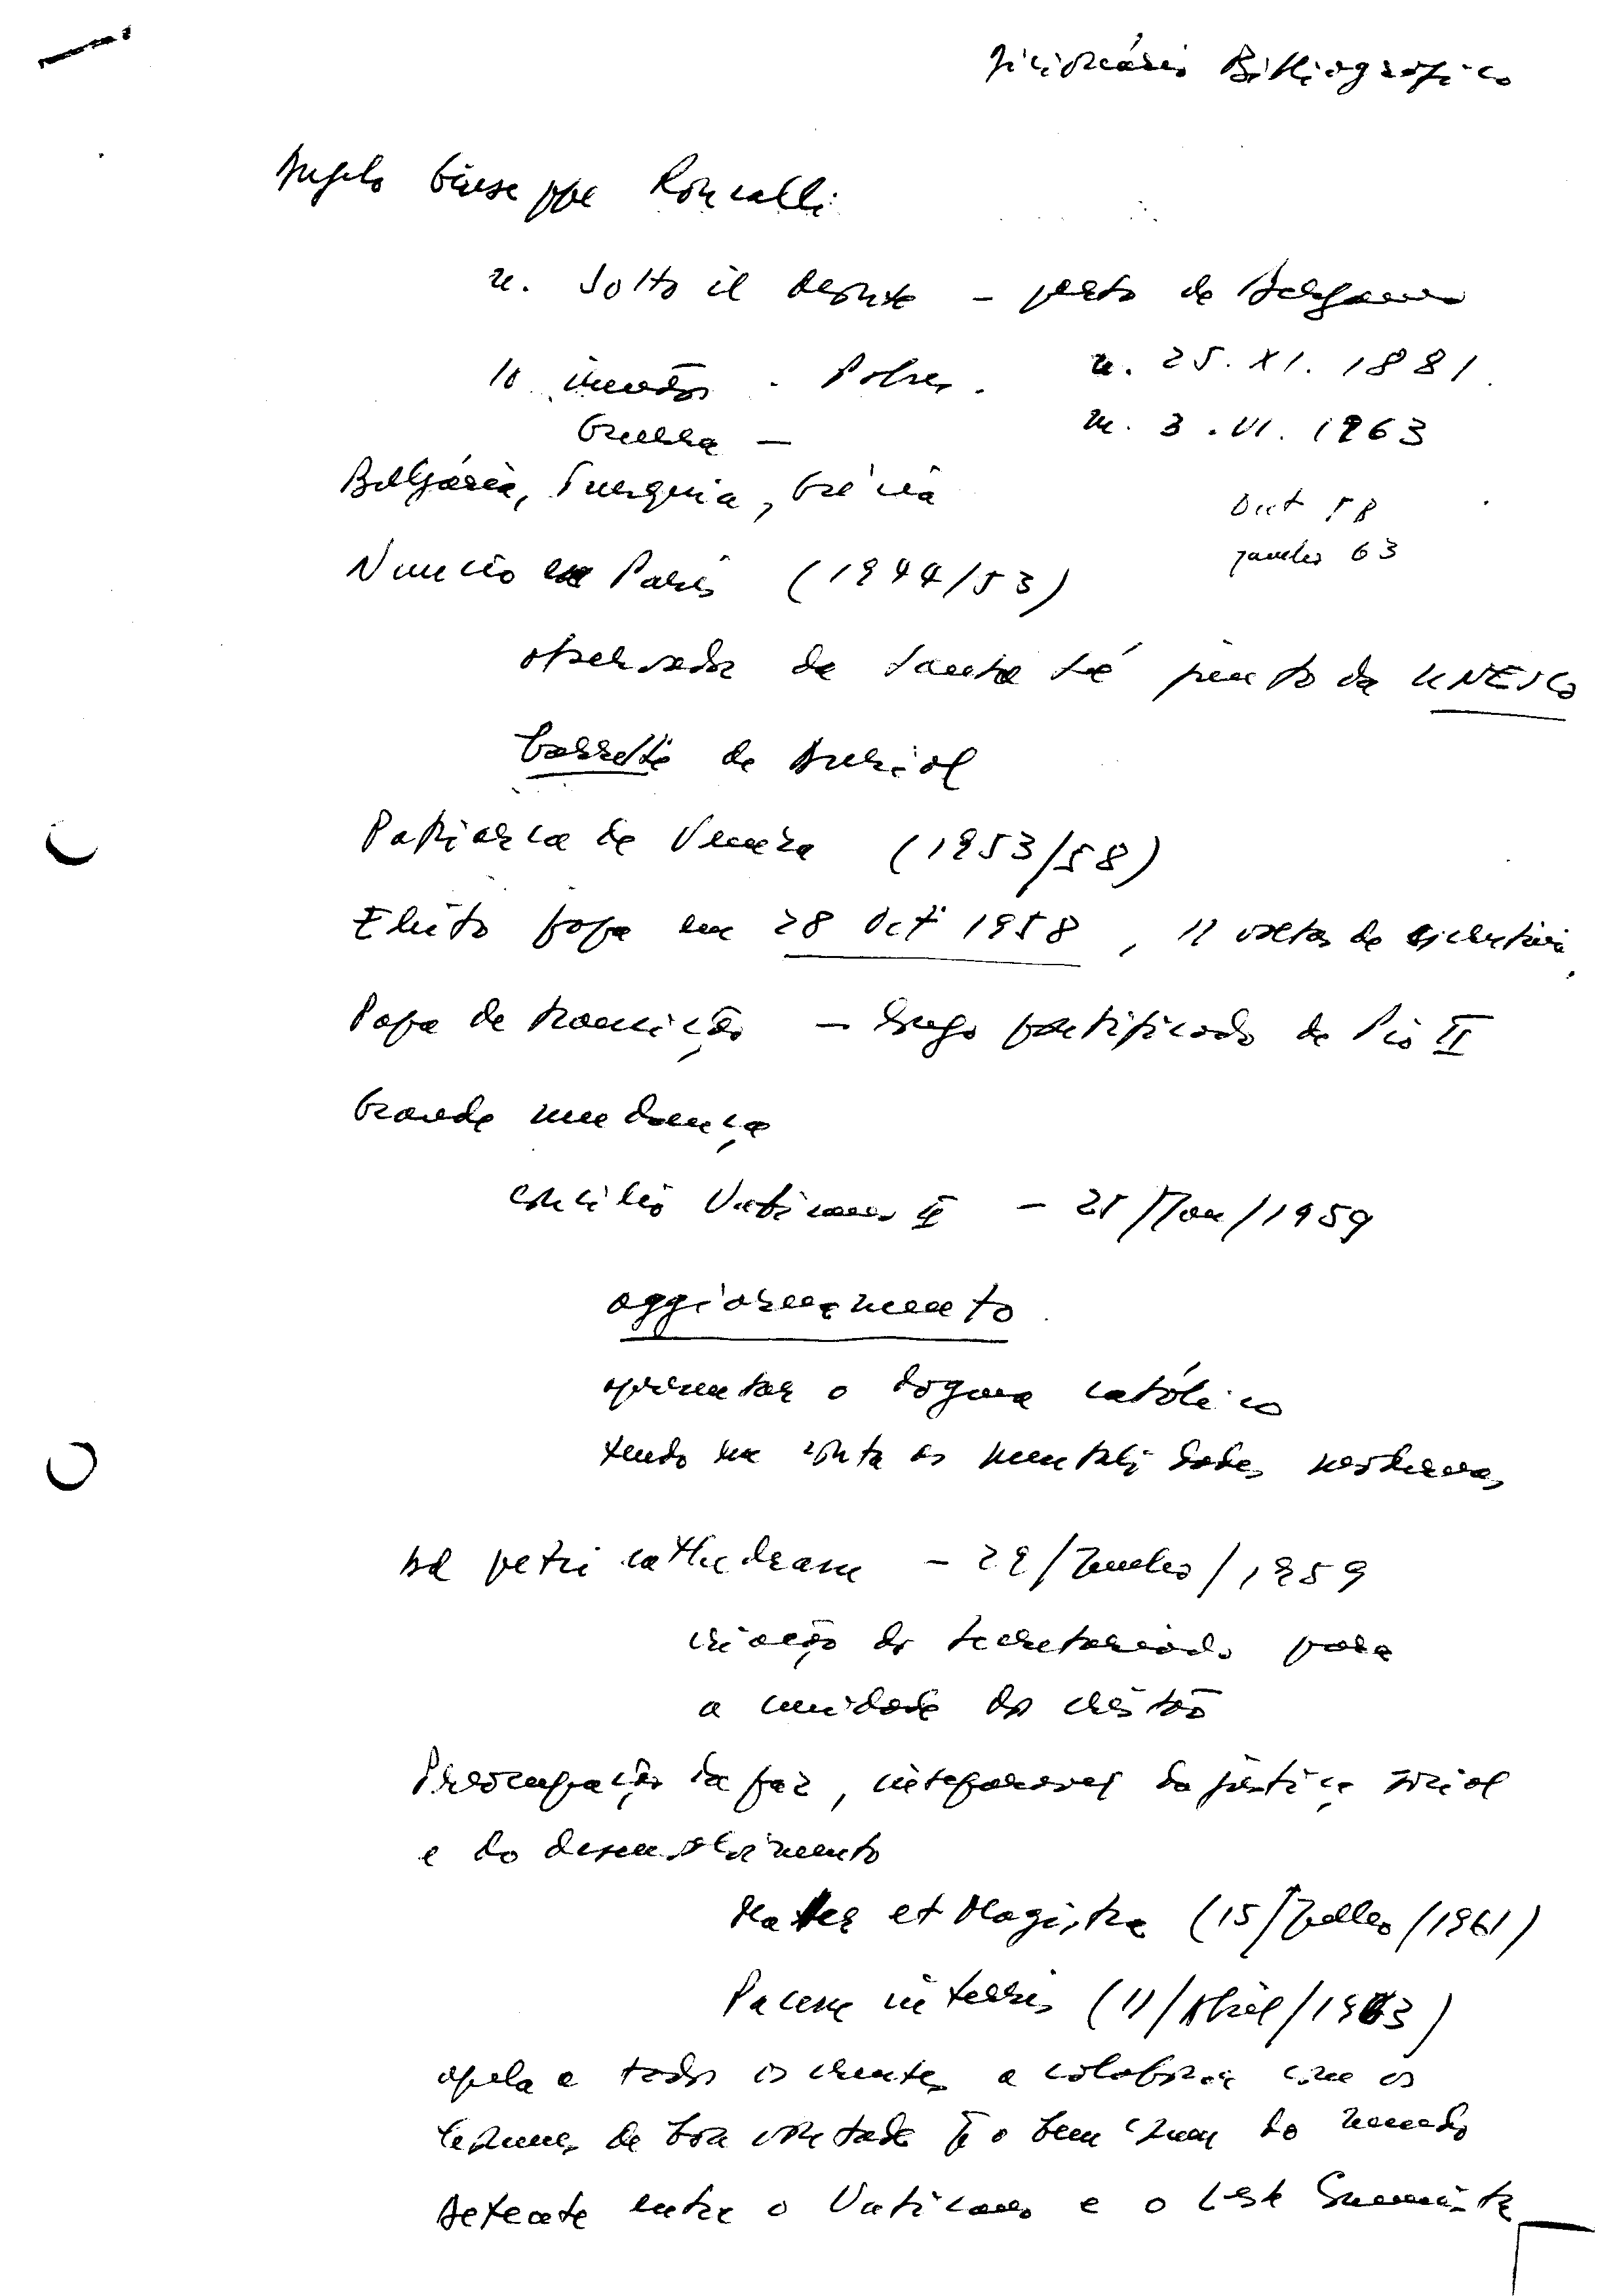 Dicionário Bibliográfico
Angelo Giuseppe Roncalli
n. Sotto il Monte – perto de Bergamo
10 irmãos . Pobres . n. 25.XI.1881
Guerra – m. 3.VI.1963
Bulgária, Turquia, Grécia
Out 58
Junho 63
Nuncio em Paris (1944/53)
observador da Santa Sé junto da UNESCO
barrete de Auriol
Patriarca de Veneza (1953/58)
Eleito papa em 28 Out 1958, 11 voltas de
Papa de transição – longo pontificado de Pio XII
Grande mudança
concilio Vaticano II – 25/Jan/1959
aggiornamento
apresentar o dogma católico
tendo em conta as mentalidades modernas
Ad petri cathedram – 29/Junho/1959
criação do secretariado para
a unidade dos cristãos
Preocupação da paz, inseparavel da justiça social
e do desenvolvimento
Mater et Magistra (15/Julho/1961)
Pacem in terris (11/Abril/1963)
apela a todos os crentes a colaborar com os
homens de boa vontade p.ª o bem comum do mundo
Detente entre o Vaticano e o Leste Comunista